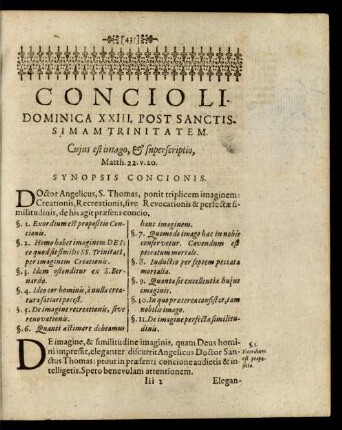 [433]
CONCIO LI.
DOMINICA XXIII. POST SANCTIS-
SIMAM TRINITATEM.
Cujus est imago, & superscriptio,
Matth. 22. v. 20.
SYNOPSIS CONCIONIS.
DOctor Angelicus, S. Thomas, ponit triplicem imaginem:
Creationis, Recreationis, sive Revocationis & perfectæ si-
militudinis, de his agit præsens concio,
§. 1. Exordium est propositio Con-
cionis.
§. 2. Homo habet imaginem DEI:
eo quod sit similis SS. Trinitati,
per imaginem Creationis.
§. 3. Idem ostenditur ex S. Ber-
nardo.
§. 4. Ideo cor hominis, à nulla crea-
tura satiari potest.
§. 5. De imagine recreationis, sive
renovationis.
§. 6. Quanti æstimare debeamus
hanc imaginem.
§. 7. Quomodo imago hac in nobis
conservetur. Cavendum est
peccatum mortale.
§. 8. Inductio per septem peccata
mortalia.
§. 9. Quanta sit excellentia hujus
imaginis.
§. 10. In quo præterea consistat, tam
nobilis imago.
§. 11. De imagine perfectæ similitu-
dinis.
DE imagine, & similitudine imaginis, quam Deus homi-
ni impressit, eleganter discurrit Angelicus Doctor San-
ctus Thomas: prout in præsenti concione audietis & in-
telligetis. Spero benevolam attentionem.
§. 1.
Exordium
est propo-
sitio.
Iii 1
Elegan-